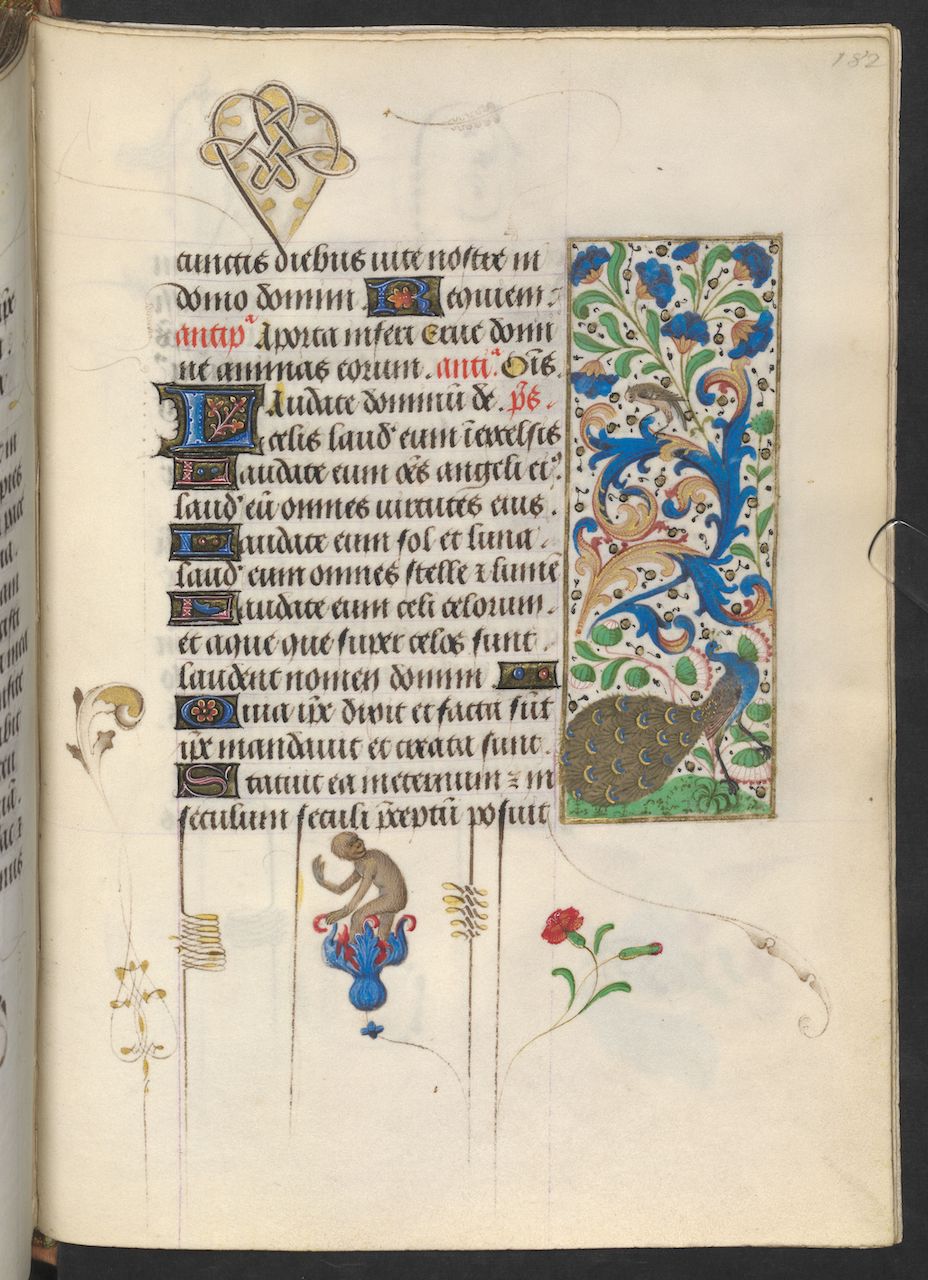 182
cunctis diebus uite nostre in
domo domini. Requiem.
antipª Aporta inferi Erue domi
ne animas eorum. antiª. Oi̅s.
Laudate dominu̅ de. p̅s.
celis laud' eum i̅ excelsis
Laudate eum o̅s angeli eiꝰ.
laud' eu̅ omnes uirtutes eius.
Laudate eum sol et luna.
laud' eum omnes stelle ⁊ lume̅
Laudate eum celi celorum.
et aque que super celos sunt
laudent nomen domini
Quia ip̅e dixit et facta su̅t
ip̅e mandauit et creata sunt.
Statuit ea ineternum ⁊ in
seculum seculi p̅ceptu̅ posuit